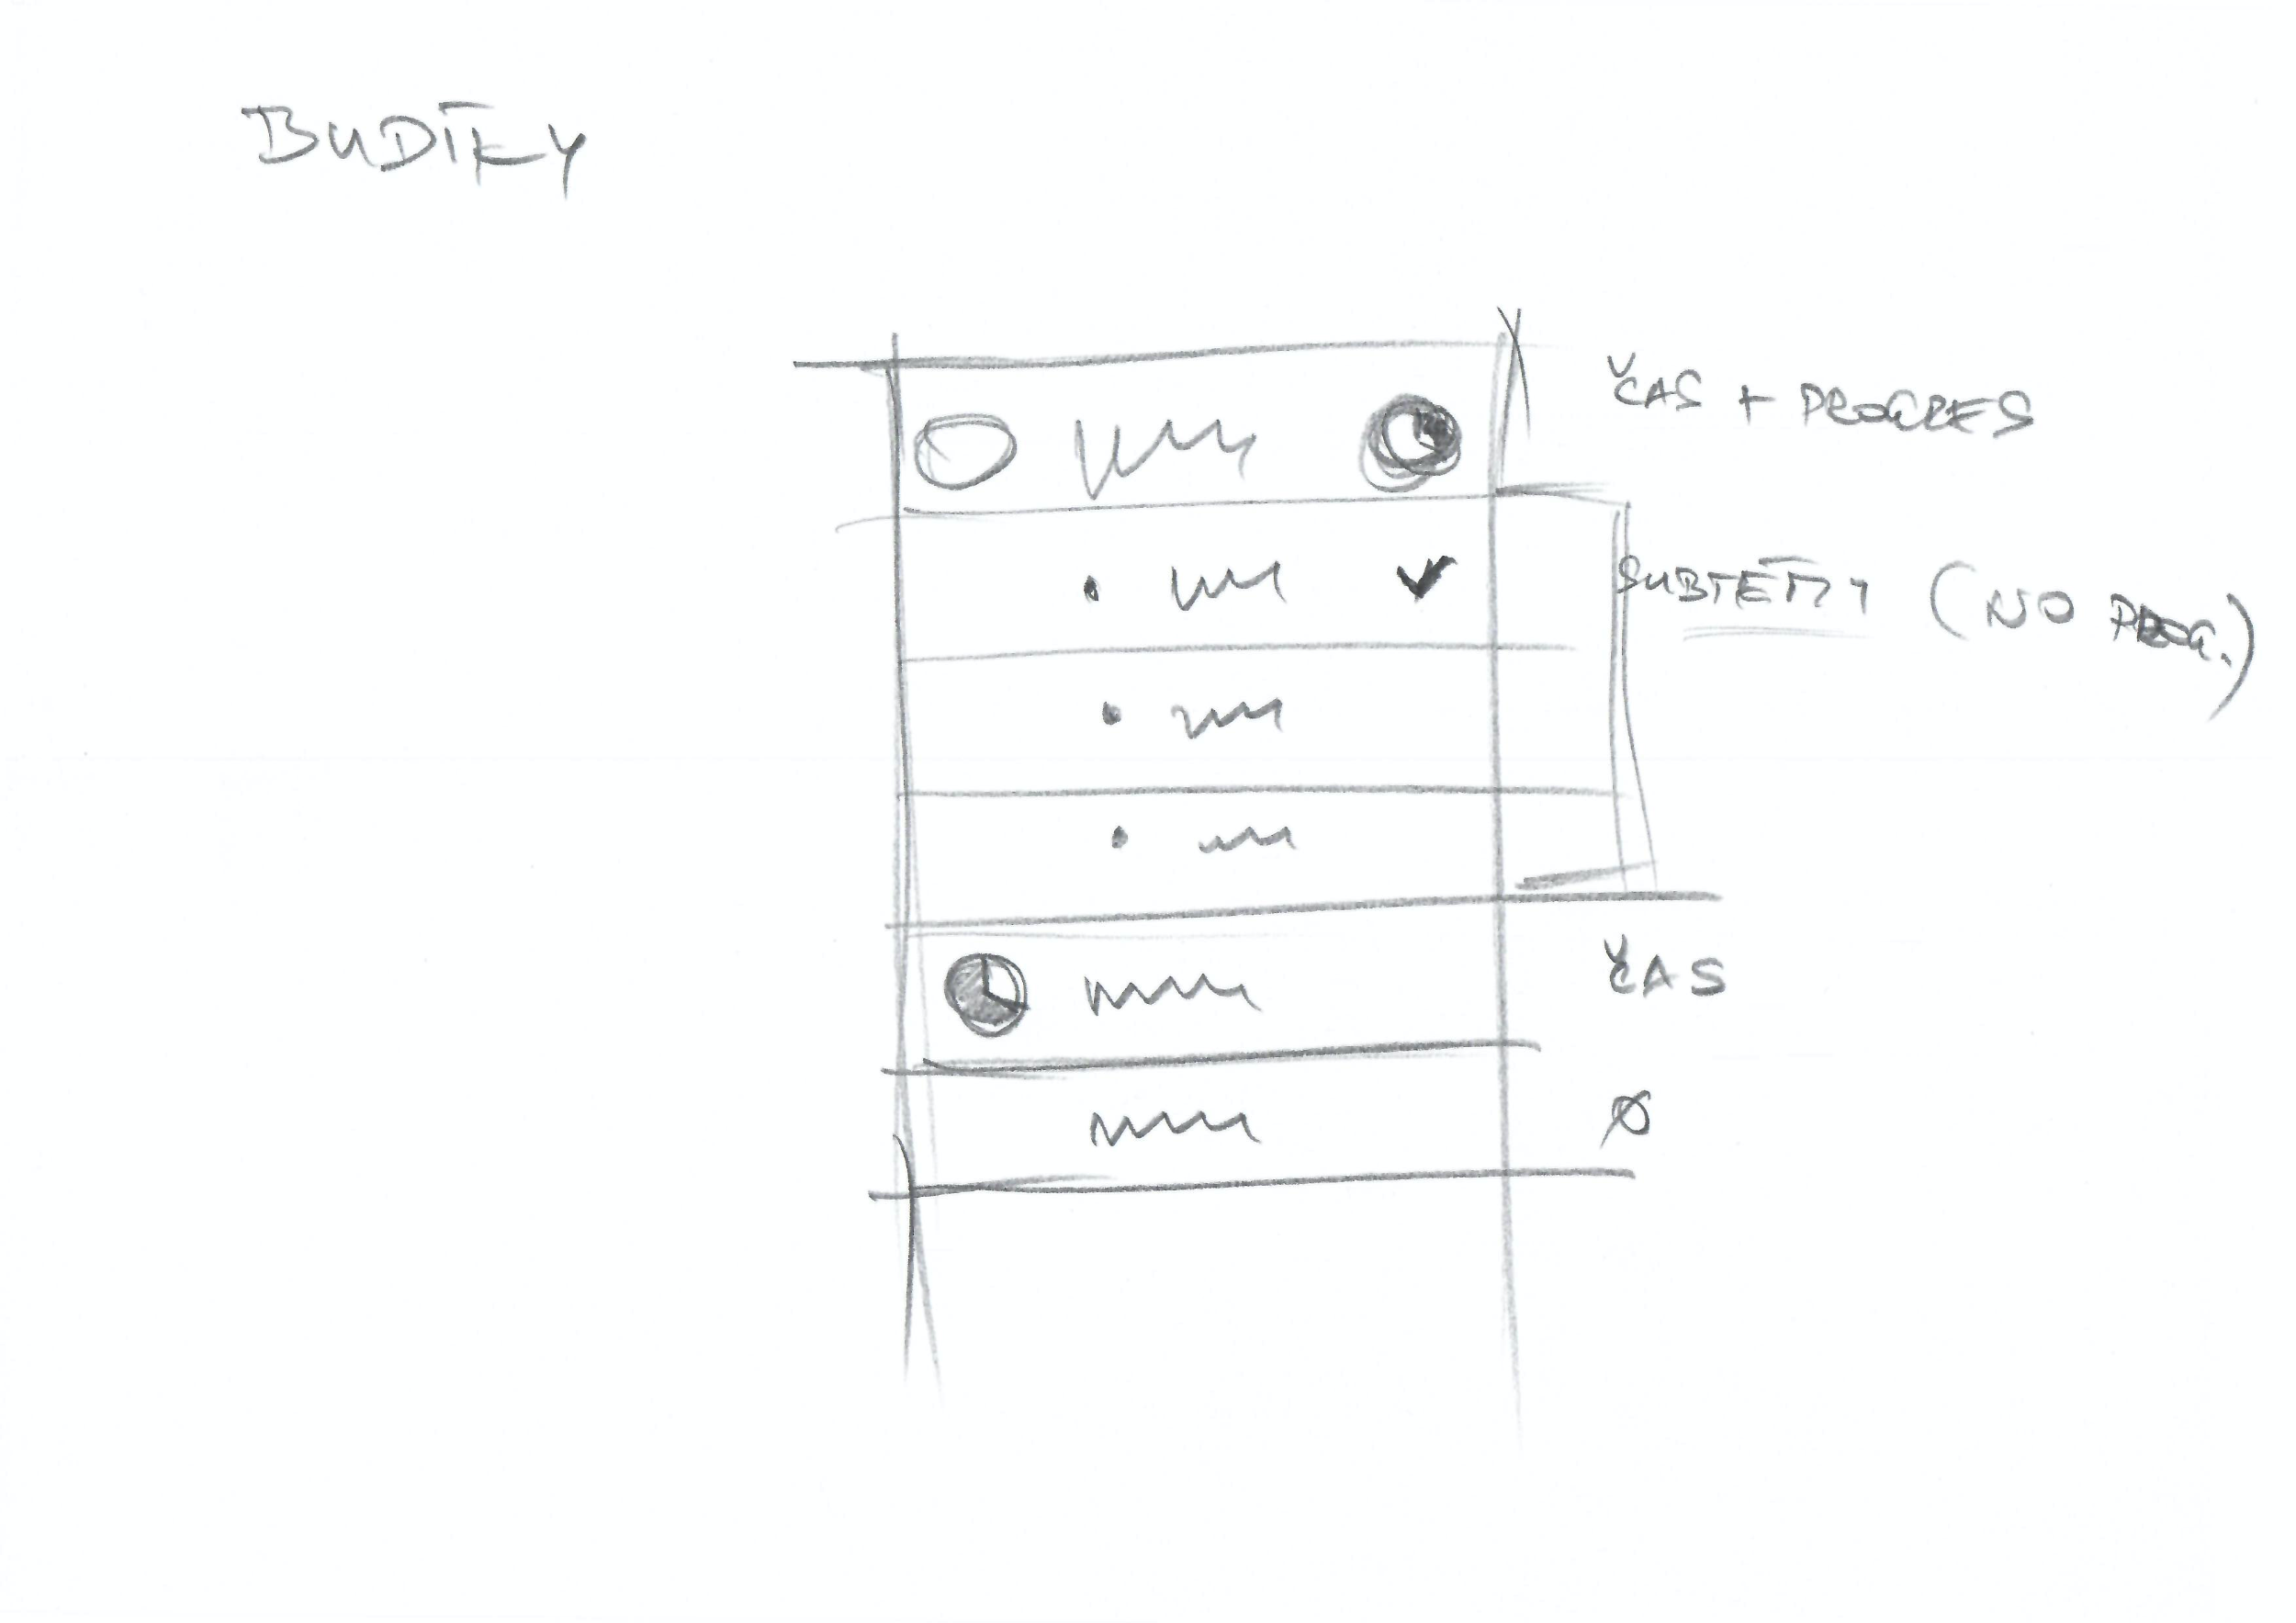 BUDÍKY
ČAS + PROGRES
SUBTÉMY (NO PROG.)
ČAS
Ø